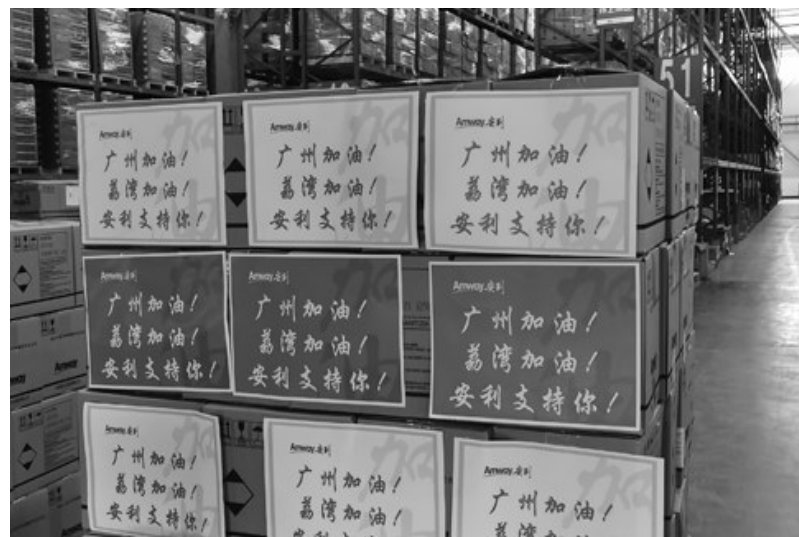 51
Amway 安利
广州加油!
荔湾加油!
安利支持你!
Amway 安利
广州加油!
荔湾加油!
安利支持你!
Amway 安利
广州加油!
荔湾加油!
安利支持你!
Amway 安利
广州加油!
荔湾加油!
安利支持你!
Amway 安利
广州加油!
荔湾加油!
安利支持你!
Amway 安利
广州加油!
荔湾加油!
安利支持你!
Amway 安利
广州加油!
荔湾加油!
安利支持你!
Amway 安利
广州加油!
荔湾加油!
Amway 安利
广州加油!
Amway